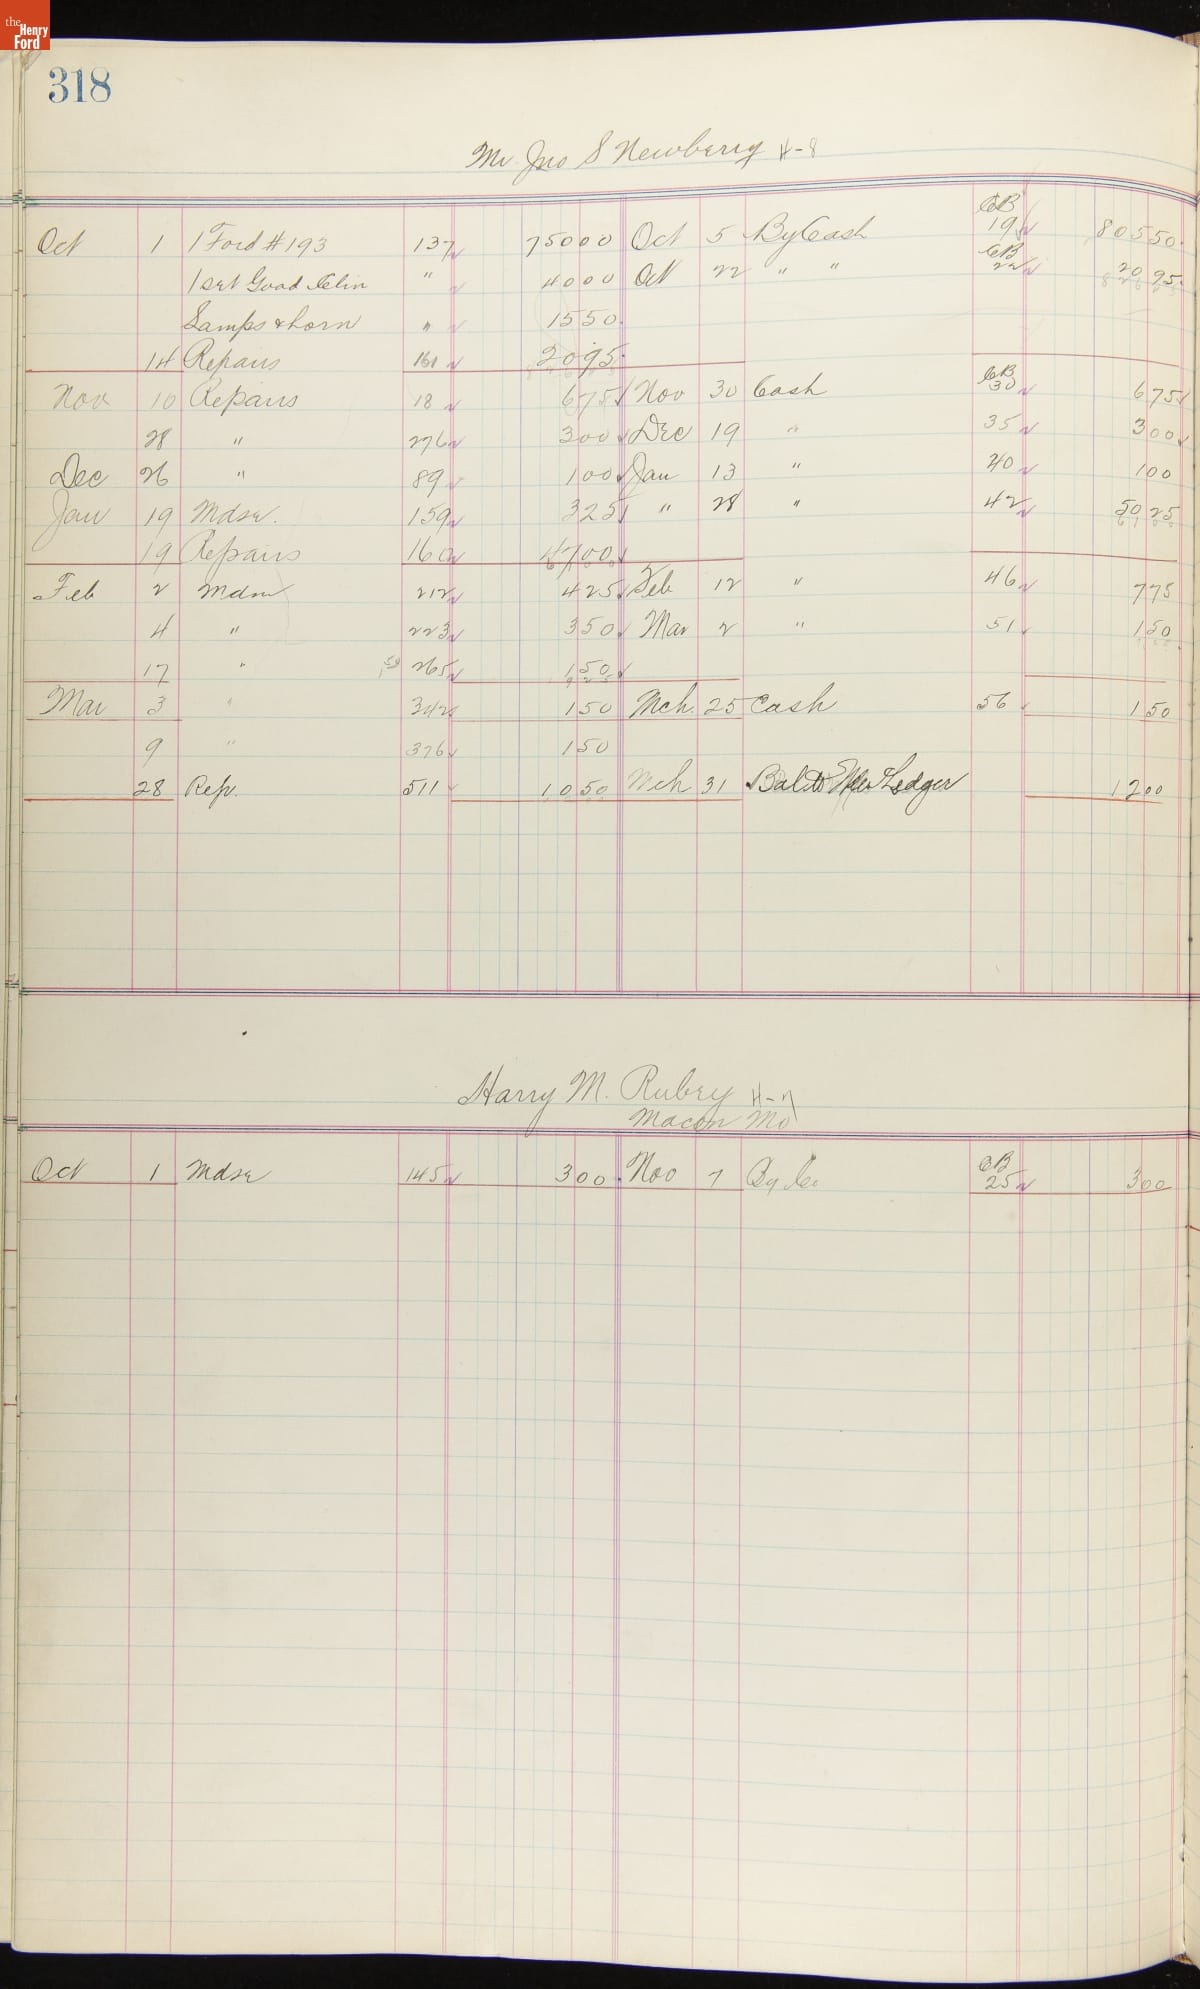 the Henry Ford
318
Mr. Jno S Newberry H-8
Oct 1 1 Ford #193 137 750 00 Oct 5 By Cash CB 19 805 50
1 set Good 40 00 Oct 22 " " CB 22 20 95
Lamps & horn " 15 50
14 Repairs 161 20 95
Nov 10 Repairs 18 6 75 Nov 30 Cash CB 30 6 75
28 " 276 3 00 Dec 19 " 35 3 00
Dec 26 " 89 1 00 Jan 13 " 40 1 00
Jan 19 Mdse. 159 3 25 " 28 " 42 50 25
19 Repairs 160 47 00
Feb 2 Mdse 212 4 25 Feb 12 " 46 7 75
4 " 223 3 50 Mar 2 " 51 1 50
17 " 265 1 50
Mar 3 " 342 1 50 Mch. 25 Cash 56 1 50
9 " 376 1 50
28 Rep. 511 10 50 Mch 31 Bal to Ledger 12 00
Harry M. Rubey H-7
Macon Mo
Oct 1 Mdse 145 3 00 Nov 7 By CB 25 3 00